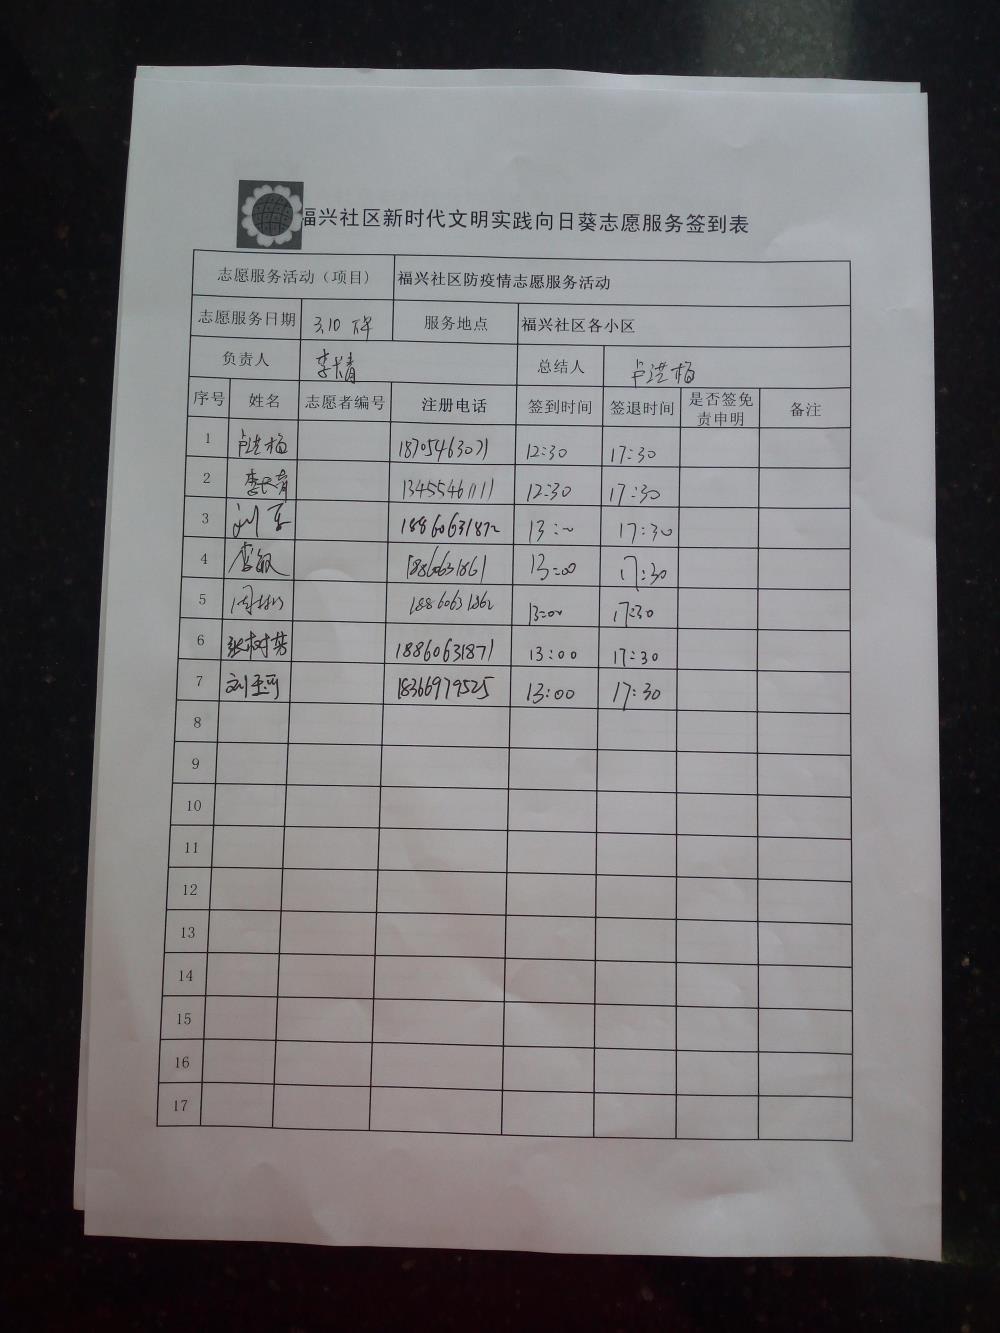 福兴社区新时代文明实践向日葵志愿服务签到表
志愿服务活动（项目） 福兴社区防疫情志愿服务活动
志愿服务日期 3.10 下午 服务地点 福兴社区各小区
负责人 李长青 总结人 卢洪梅
序号 姓名 志愿者编号 注册电话 签到时间 签退时间 是否签免责申明 备注
1 卢洪梅 18705463071 12:30 17:30
2 李长青 13455461111 12:30 17:30
3 18860631872 13:00 17:30
4 李敏 18860631861 13:00 17:30
5 18860631862 13:00 17:30
6 张树芳 18860631871 13:00 17:30
7 刘亚可 18366979525 13:00 17:30
8
9
10
11
12
13
14
15
16
17